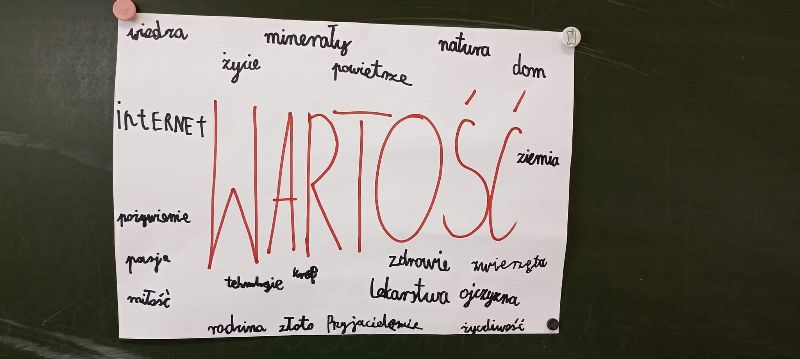 wiedza
minerały
natura
życie
powietrze
dom
INTERNET
WARTOŚĆ
ziemia
pożywienie
pasja
miłość
technologie
zdrowie
zwierzęta
lekarstwa
ojczyzna
rodzina
złoto
życzliwość